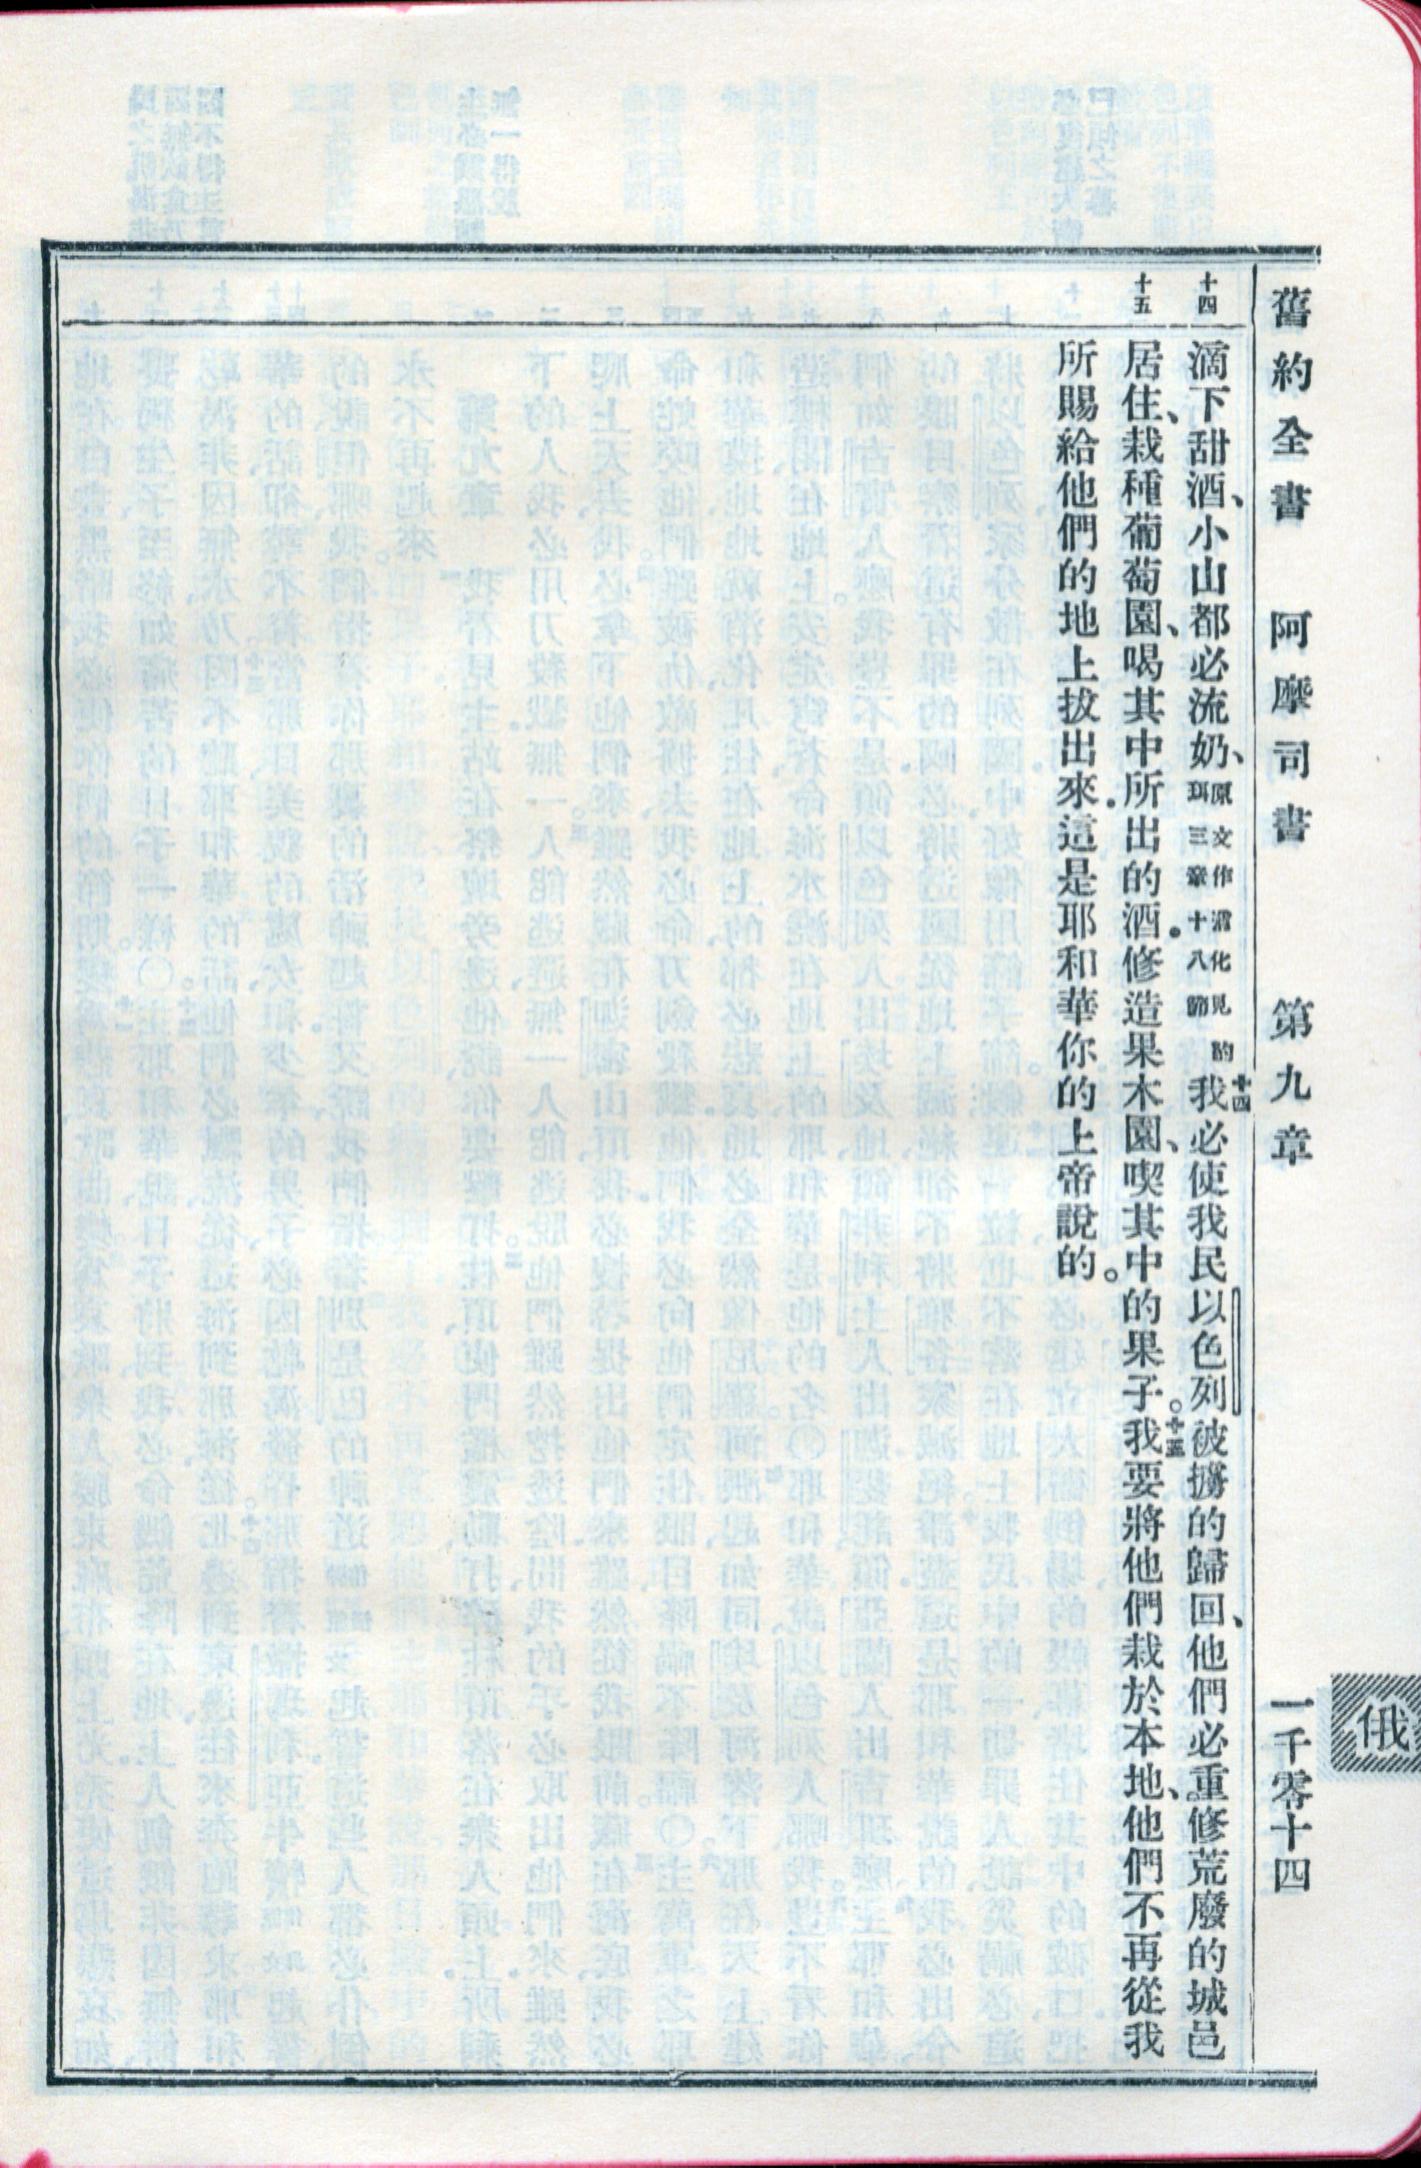 舊約全書 阿摩司書 第九章 一千零十四
俄
十四
滴下甜酒、小山都必流奶、原文作消化見珥三章十八節的 十四我必使我民以色列被擄的歸回、他們必重修荒廢的城邑
十五
居住、栽種葡萄園、喝其中所出的酒．修造果木園、喫其中的果子。十五我要將他們栽於本地、他們不再從我
所賜給他們的地上拔出來．這是耶和華你的上帝說的。